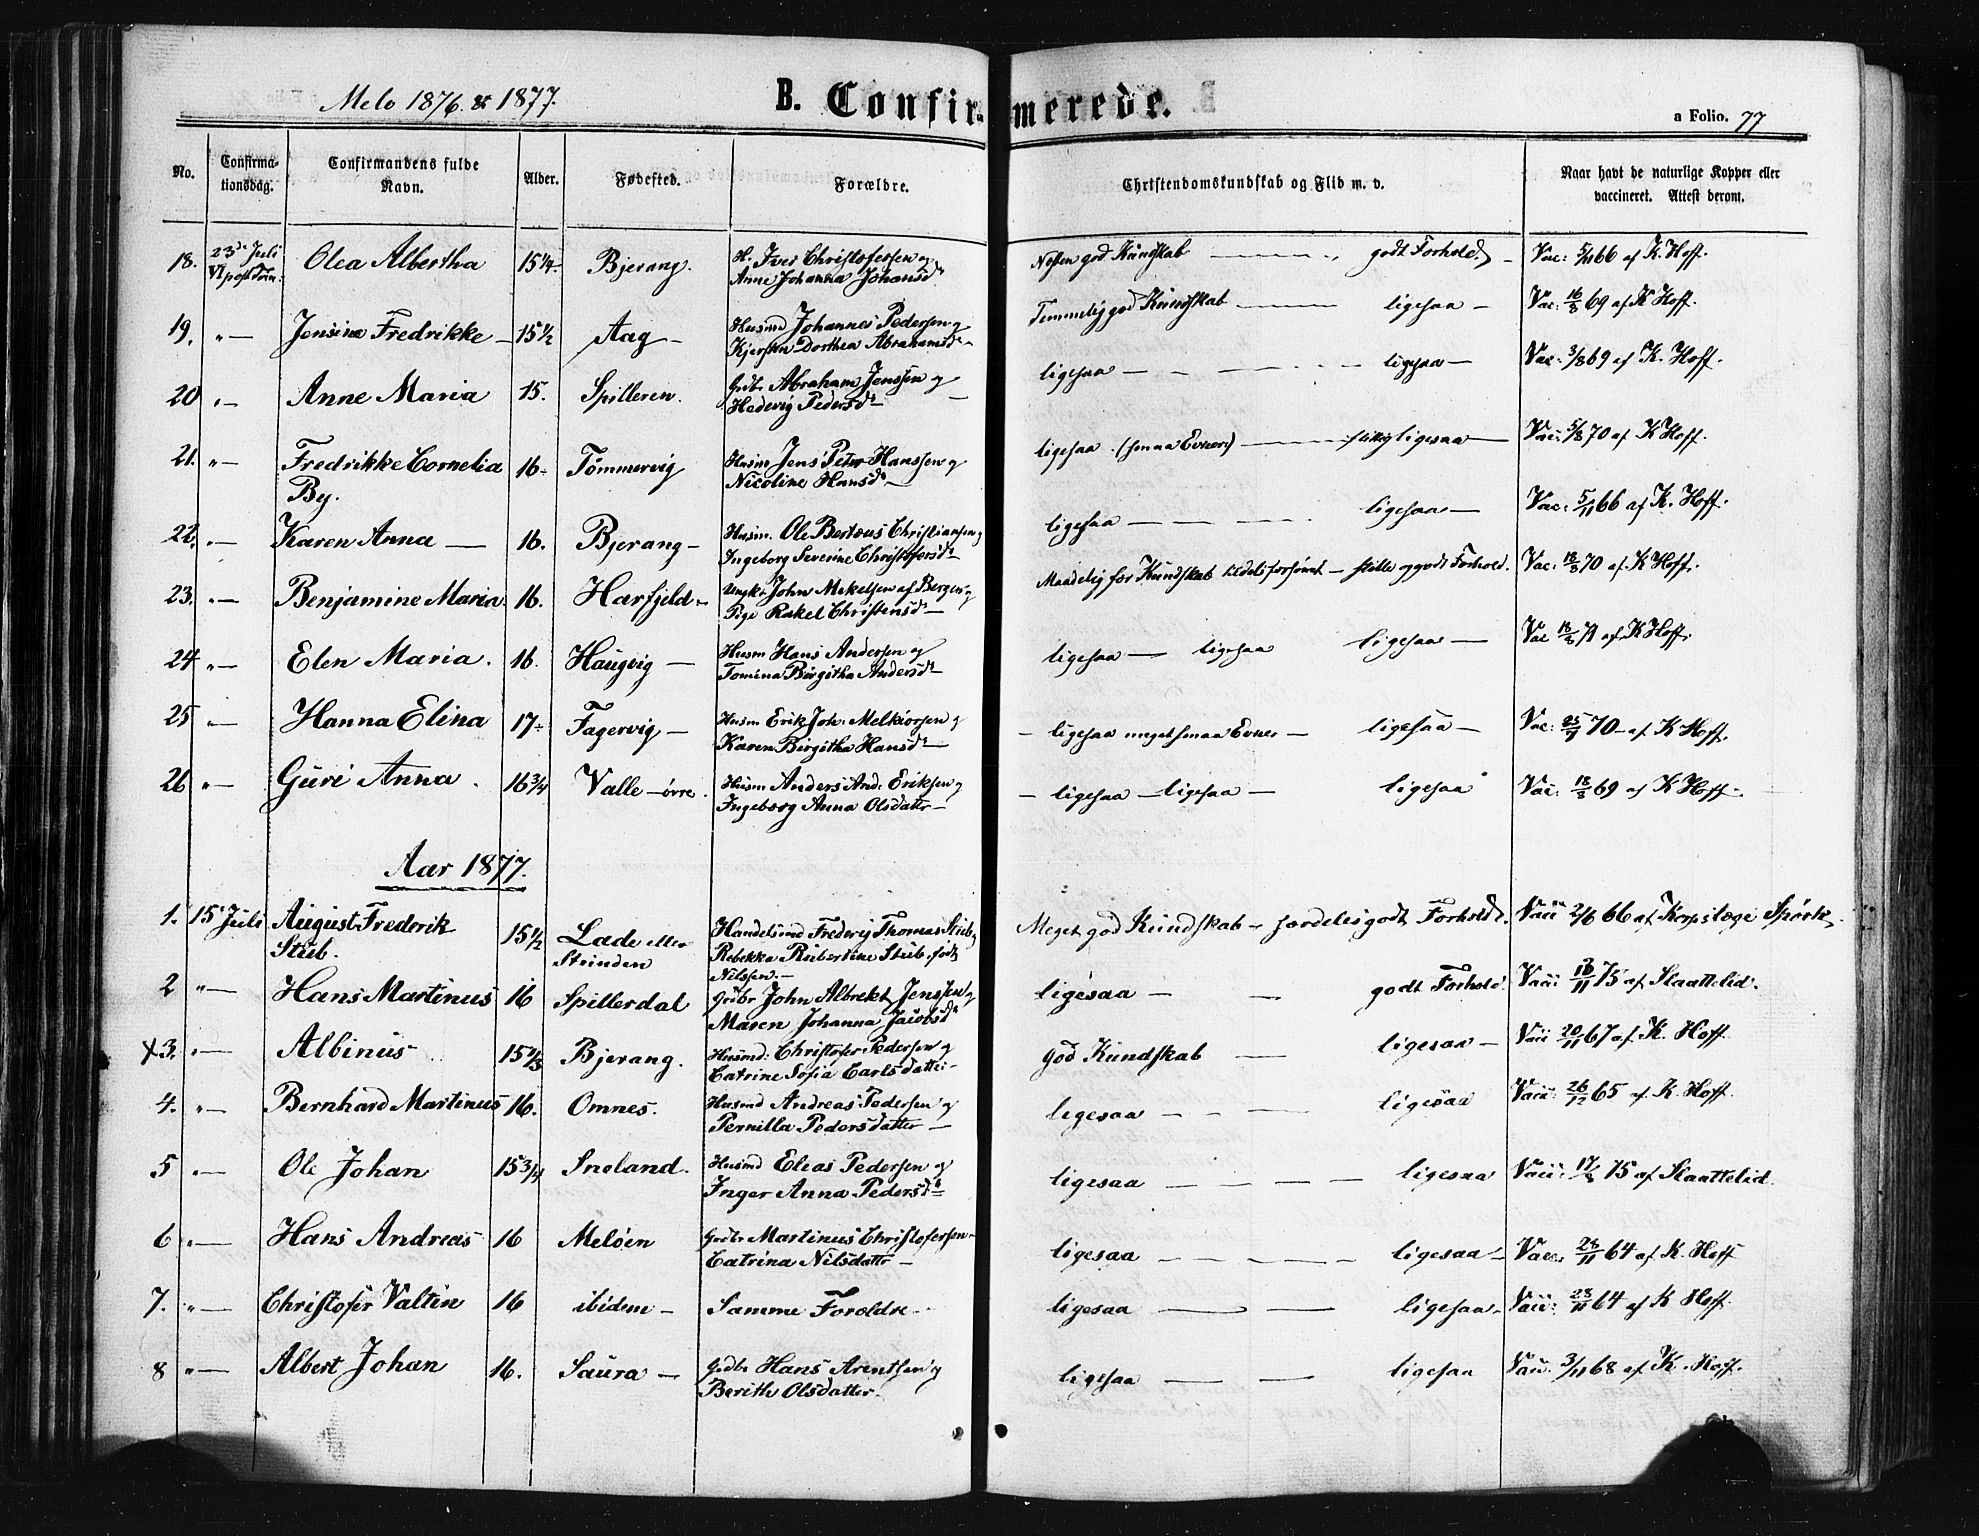 Melo 1876 & 1877.
B. Confirmerede.
a Folio. 77
No.
Confirma-
tionsdag.
Confirmandens fulde
Navn.
Alder.
Fødested.
Forældre.
Christendomskundskab og Flid m. v.
Naar havt de naturlige Kopper eller
vaccineret. Attest derom.
18. 23de Juli Olea Albertha 15¼ Bjerang. Iver Christofersen og
VI post Trin: Anne Johanna Johansdr
Næsten god Kundskab — godt Forhold — Vac: 5/11 66 af K. Hoff.
19. "— Jensine Fredrikke — 15½ Aag — Husmd Johannes Pedersen og
Kjersten Dorthea Abrahamsdr —
Temmelig god Kundskab — ligesaa — Vac: 16/8 69 af K Hoff.
20 "— Anne Maria 15. Spilleren. Grdbr Abraham Jenssen og
Hedevig Pedersdr —
ligesaa — ligesaa — Vac: 3/8 69 af K. Hoff.
21. "— Fredrikke Cornelia 16- Tømmervig Husm Jens Peter Hanssen og
By. Nicoline Hansdr —
ligesaa (smaa Evner) — flittig ligesaa — Vac: 5/8 70 af K Hoff.
22. "— Karen Anna — 16. Bjerang — Husm. Ole Berteus Christiansen og
Ingeborg Severine Christofersdr
ligesaa — ligesaa — Vac: 5/11 66 af K. Hoff.
23. "— Benjamine Maria 16. Harfjeld — Ungk: John Mikelsen af Bergen og
Pige Rakel Christensdr —
Maadelig før Kundskab tildels forsømt — stille og godt Forhold. Vac: 18/8 70 af K Hoff.
24 "— Elen Maria. 16. Haugvig — Husm Hans Andersen og
Tomina Birgitha Andersdr
ligesaa — ligesaa ligesaa — Vac 18/8 71 af K Hoff.
25 "— Hanna Elina 17- Fagervig — Husm Erik Joh: Melkiorsen og
Karen Birgitha Hansdr —
— ligesaa meget smaa Evner — ligesaa — Vac: 70 — af K Hoff.
26 "— Guri Anna. 16¾ Valle — øvre. Husm Anders And: Eriksen og
Ingeborg Anna Olsdatter —
— ligesaa — ligesaa — ligesaa Vac: 18/8 69 af K Hoff.
Aar 1877.
1. 15 Juli August Frederik 15½ Lade eller Handelsmd Frederig Thomas Stub og
Stub. Strinden Rebekka Stub, født
Nilssen. —
Meget god Kundskab — særdeles godt Forhold. Vacc 2/6 66 af Korpslæge Spørk.
2 "— Hans Martinus 16 Spillerdal Grdbr John Albrekt Jenssen og
Maren Johanna Jacobsdr
ligesaa — — godt Forhold. Vacc: 75 af Slaattelid.
X3. "— Albinus 15⅔ Bjerang. Husmd: Christofer Pedersen og
Catrine Sofia Carlsdatter —
god Kundskab — ligesaa — Vacc 20/11 67 af K. Hoff.
4. "— Bernhard Martinus 16. Omnes. Husmd Andreas Pedersen og
Pernilla Pedersdatter —
ligesaa — — — ligesaa Vacc: 26/12 65 af K. Hoff.
5 "— Ole Johan 15¾ Sneland. Husmd Elias Pedersen og
Inger Anna Pedersdr
ligesaa — — — — ligesaa Vacc: 75 af Slaattelid.
6 "— Hans Andreas 16 Meløen Grdbr Martinus Christofersen —
Catrina Nilsdatter —
ligesaa — — — — ligesaa — Vacc: 28/11 64 af K. Hoff
7. "— Christofer Valtin 16 ibidem — Samme Foreldre —
ligesaa — — — ligesaa — Vacc: 28/11 64 af K Hoff.
8 "— Albert Johan 16. Saura — Grdbr Hans Arentsen og
Berithe Olsdatter.
ligesaa — — ligesaa Vacc: 3/11 68 af K. Hoff.